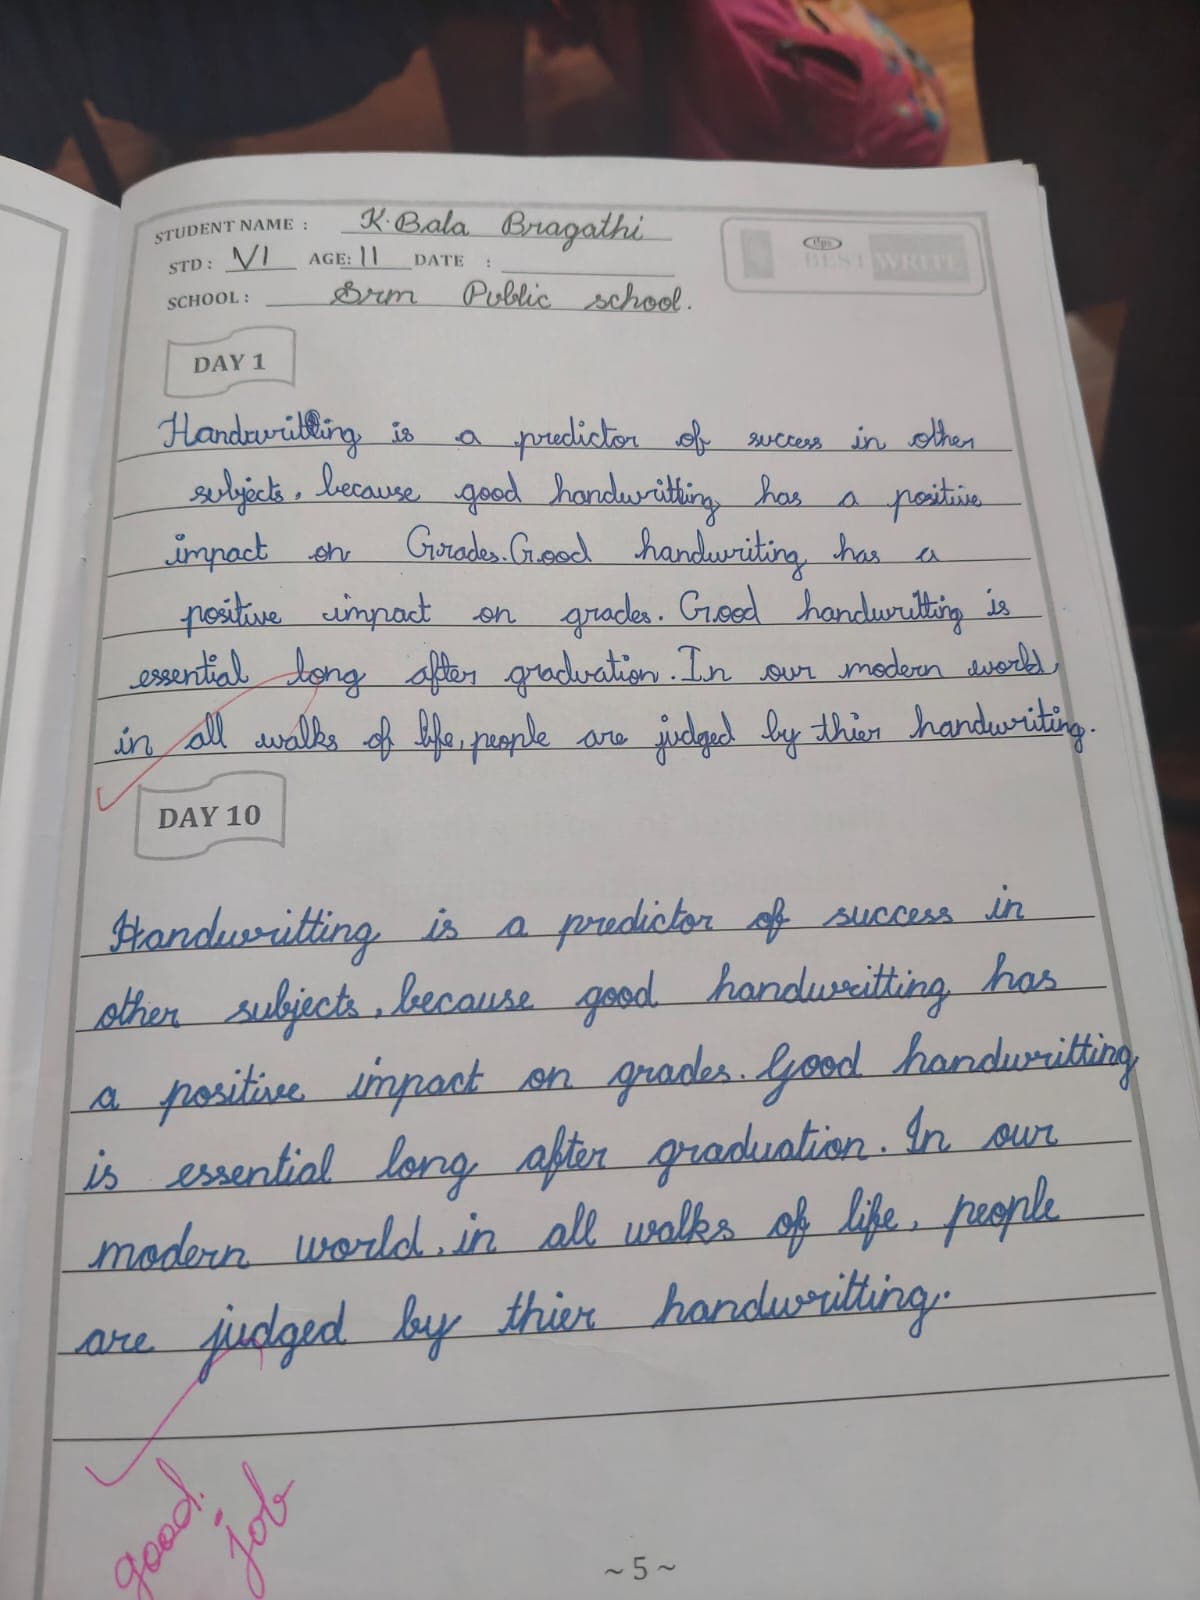 STUDENT NAME : K. Bala Bragathi
STD : VI AGE: 11 DATE :
SCHOOL : Srm Public school.
BEST WRITE
DAY 1
Handwritting is a predictor of success in other
subjects, because good handwritting has a positive
impact on Grades. Good handwriting has a
positive impact on grades. Good handwritting is
essential long after graduation. In our modern world,
in all walks of life, people are judged by thier handwriting.
DAY 10
Handwritting is a predictor of success in
other subjects, because good handwritting has
a positive impact on grades. Good handwritting
is essential long after graduation. In our
modern world, in all walks of life, people
are judged by thier handwritting.
good
job
~ 5 ~